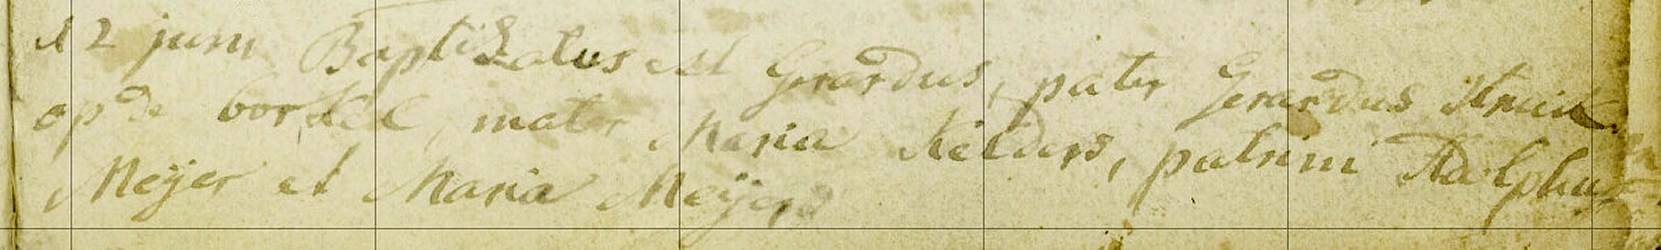 12 juni Baptizatus est Gerardus, pater Gerardus
op de borkel, mater Maria Kelders, patrini Adolphus
Meÿer et Maria Meÿers